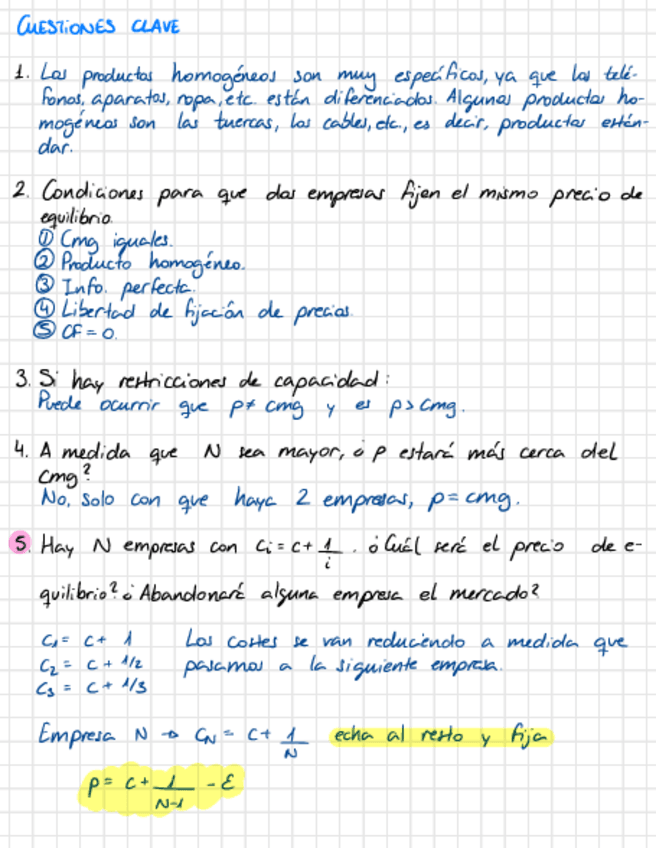 CUESTIONES CLAVE
1. Los productos homogéneos son muy específicos, ya que los telé-
fonos, aparatos, ropa, etc. están diferenciados. Algunos productos ho-
mogéneos son las tuercas, los cables, etc., es decir, productos están-
dar.
2. Condiciones para que dos empresas fijen el mismo precio de
equilibrio.
① Cmg iguales.
② Producto homogéneo.
③ Info. perfecta.
④ Libertad de fijación de precios.
⑤ CF = 0.
3. Si hay restricciones de capacidad:
Puede ocurrir que p ≠ cmg y es p > cmg.
4. A medida que N sea mayor, ¿p estará más cerca del
cmg?
No, solo con que haya 2 empresas, p = cmg.
5. Hay N empresas con Ci = c + 1/i. ¿Cuál será el precio de e-
quilibrio? ¿Abandonará alguna empresa el mercado?
C1 = c + 1 Los costes se van reduciendo a medida que
C2 = c + 1/2 pasamos a la siguiente empresa.
C3 = c + 1/3
Empresa N → CN = c + 1/N echa al resto y fija
p = c + 1/N-1 - ε